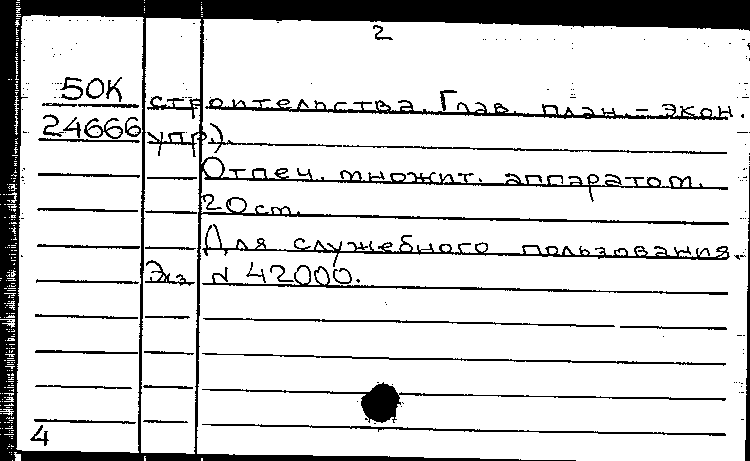 2
50К строительства. Глав. план.-экон.
24666 упр.).
Отпеч. множит. аппаратом.
20 ст.
Для служебного пользования.
Экз. N 42000.
4